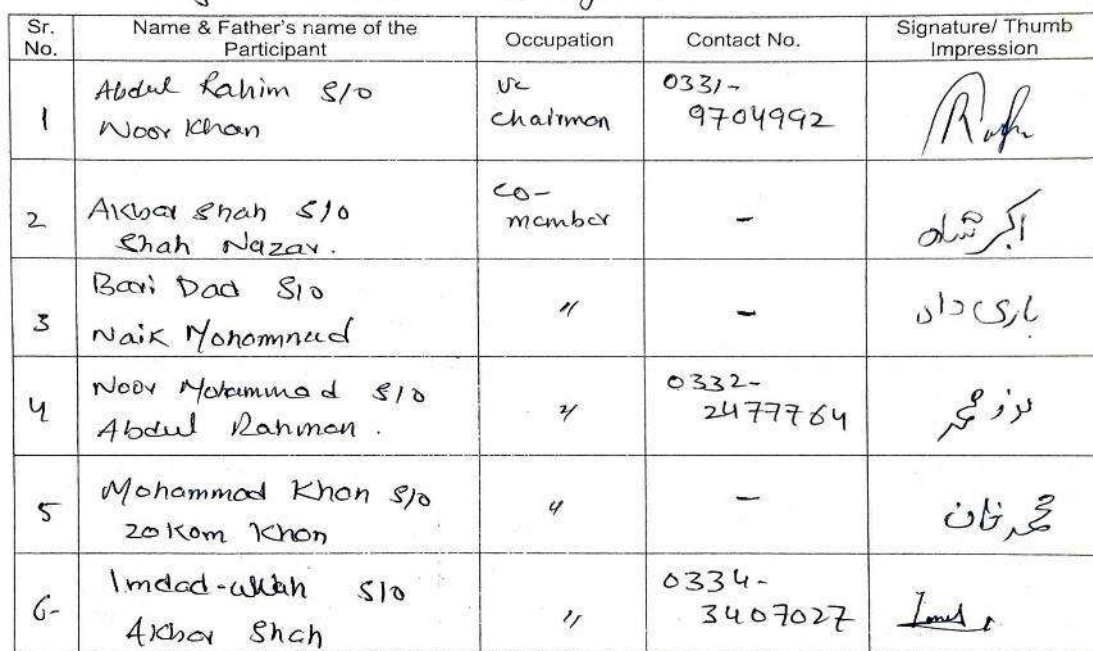 Sr. No. Name & Father's name of the Participant Occupation Contact No. Signature/ Thumb Impression
1 Abdul Rahim S/o Noor Khan UC Chairman 0331-9704992
2 Akbar Shah S/o Shah Nazar. CO-member - اکبر شاہ
3 Bari Dad S/o Naik Mohommad " - باری داد
4 Noor Mohammad S/o Abdul Rahman. " 0332-2477764 نور محمد
5 Mohammad Khan S/o Zokom Khan " - محمد خان
6- Imdad-ullah S/o Akbar Shah " 0334-3407027